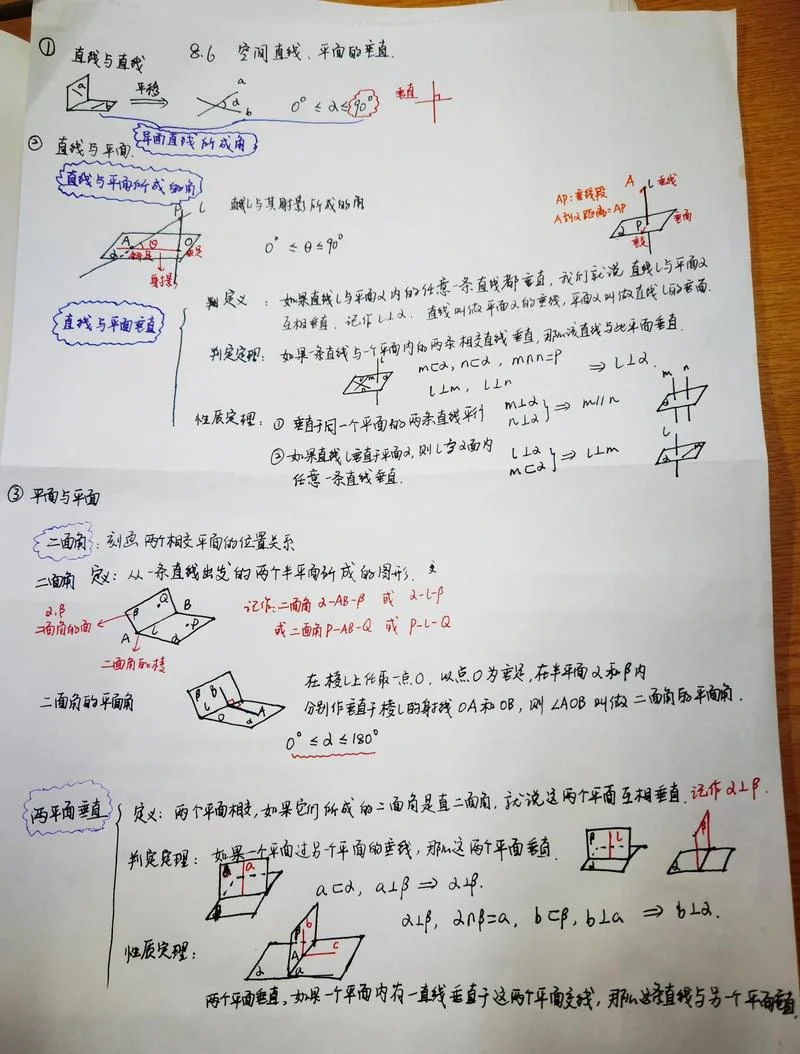 8.6 空间直线、平面的垂直.
① 直线与直线
a b 平移 a α b 0° ≤ α ≤ 90° 垂直
异面直线所成角
② 直线与平面.
直线与平面所成的角
直线l与其射影所成的角
0° ≤ θ ≤ 90°
P l A θ O α 斜足 垂足
射影
AP:垂线段
A到α距离=AP
A l 垂线
α P 垂面
垂足
直线与平面垂直
定义: 如果直线l与平面α内的任意一条直线都垂直, 我们就说 直线l与平面α
互相垂直. 记作l⊥α. 直线叫做平面α的垂线, 平面α叫做直线l的垂面.
判定定理: 如果一条直线与一个平面内的两条相交直线垂直, 那么该直线与此平面垂直.
m⊂α, n⊂α, m∩n=P ⇒ l⊥α.
l⊥m, l⊥n
性质定理: ① 垂直于同一个平面的两条直线平行 m⊥α
n⊥α } ⇒ m∥n
m n α
② 如果直线l垂直于平面α, 则l与α面内 l⊥α
任意一条直线垂直. m⊂α } ⇒ l⊥m
l α
③ 平面与平面
二面角: 刻画两个相交平面的位置关系
二面角 定义: 从一条直线出发的两个半平面所成的图形.
α,β
二面角的面
β Q B A l α P
二面角的棱
记作: 二面角 α-AB-β 或 α-l-β
或二面角P-AB-Q 或 P-l-Q
二面角的平面角
β B l O A α
在棱l上任取一点O, 以点O为垂足, 在半平面α和β内
分别作垂直于棱l的射线OA和OB, 则∠AOB叫做二面角的平面角.
0° ≤ α ≤ 180°
两平面垂直
定义: 两个平面相交, 如果它们所成的二面角是直二面角, 就说这两个平面互相垂直. 记作α⊥β.
判定定理: 如果一个平面过另个平面的垂线, 那么这两个平面垂直.
a⊂α, a⊥β ⇒ α⊥β.
α⊥β, α∩β=a, b⊂β, b⊥a ⇒ b⊥α.
性质定理:
β b A c α a
两个平面垂直, 如果一个平面内有一直线垂直于这两个平面交线, 那么这条直线与另个平面垂直.